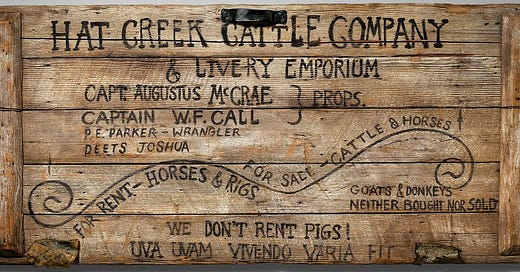 HAT CREEK CATTLE COMPANY
& LIVERY EMPORIUM
CAPT. AUGUSTUS McCRAE
CAPTAIN W.F. CALL
PROPS.
P.E. PARKER - WRANGLER
DEETS JOSHUA
FOR RENT - HORSES & RIGS
FOR SALE - CATTLE & HORSES
GOATS & DONKEYS
NEITHER BOUGHT NOR SOLD
WE DON'T RENT PIGS!
UVA UVAM VIVENDO VARIA FIT